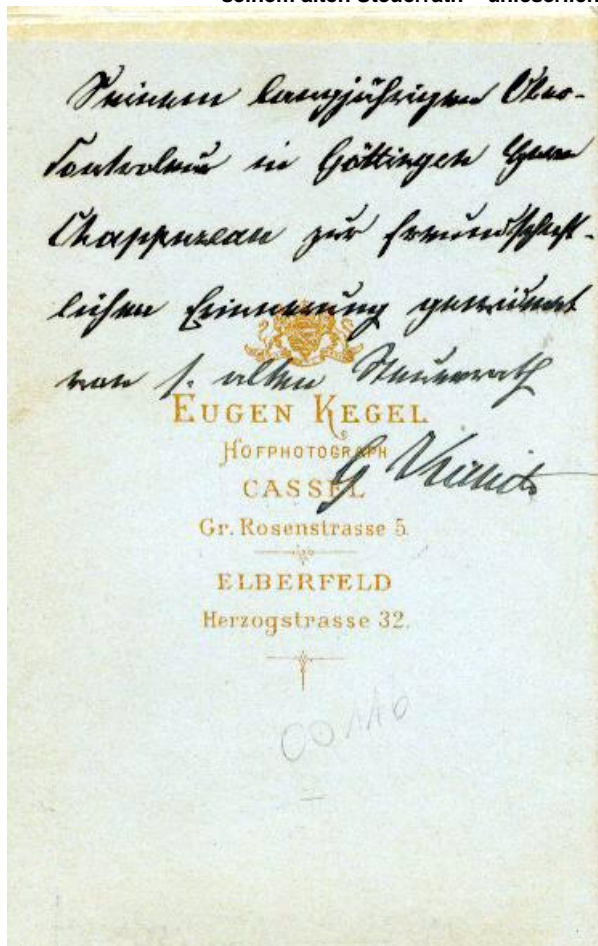 seinem alten Steuerrath
Seinem langjährigen Ober-
Kontroleur in Göttingen Herrn
Chappuzeau zur freundschaft-
lichen Erinnerung gewidmet
von s. alten Steuerrath
G
EUGEN KEGEL
HOFPHOTOGRAPH
CASSEL
Gr. Rosenstrasse 5.
ELBERFELD
Herzogstrasse 32.
00116